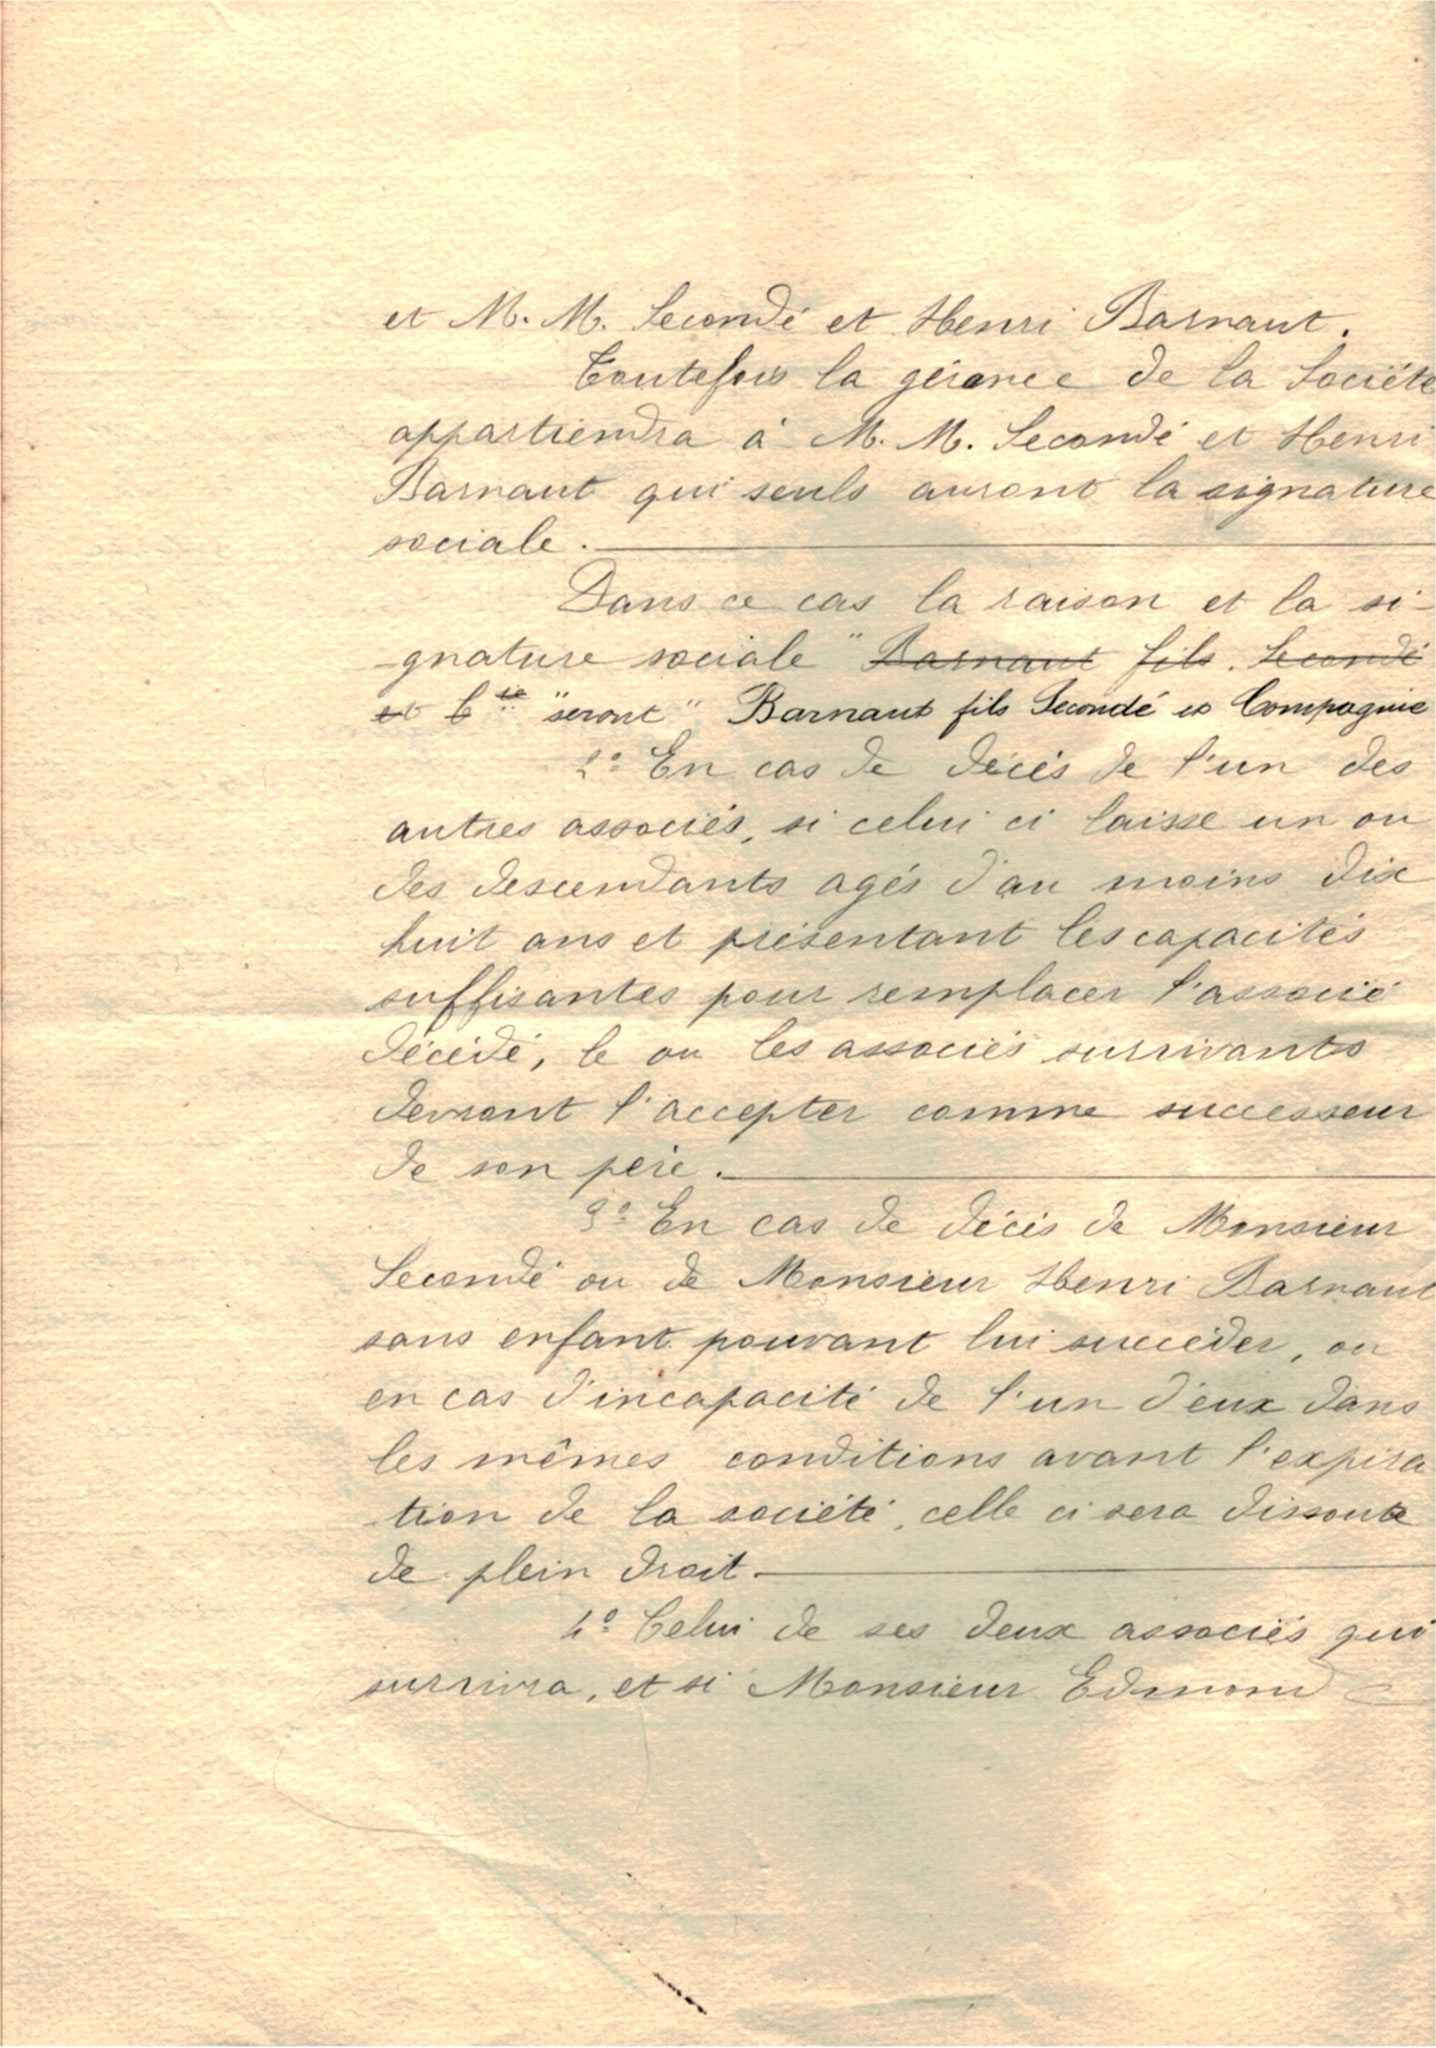 et M. M. Secondé et Henri Barnaut.
Toutefois la gérance de la Société
appartiendra à M. M. Secondé et Henri
Barnaut qui seuls auront la signature
sociale.
Dans ce cas la raison et la si-
-gnature sociale " Barnaut fils. Secondé
et Cie " seront " Barnaut fils Secondé et Compagnie
2° En cas de décés de l'un des
autres associés, si celui ci laisse un ou
des descendants agés d'au moins dix
huit ans et présentant les capacités
suffisantes pour remplacer l'associé
décédé, le ou les associés survivants
devront l'accepter comme successeur
de son père.
3° En cas de décés de Monsieur
Secondé ou de Monsieur Henri Barnaut
sans enfant pouvant lui succéder, ou
en cas d'incapacité de l'un d'eux dans
les mêmes conditions avant l'expira
tion de la société, celle ci sera dissoute
de plein droit.
4° Celui de ses deux associés qui
survivra, et si Monsieur Edmond